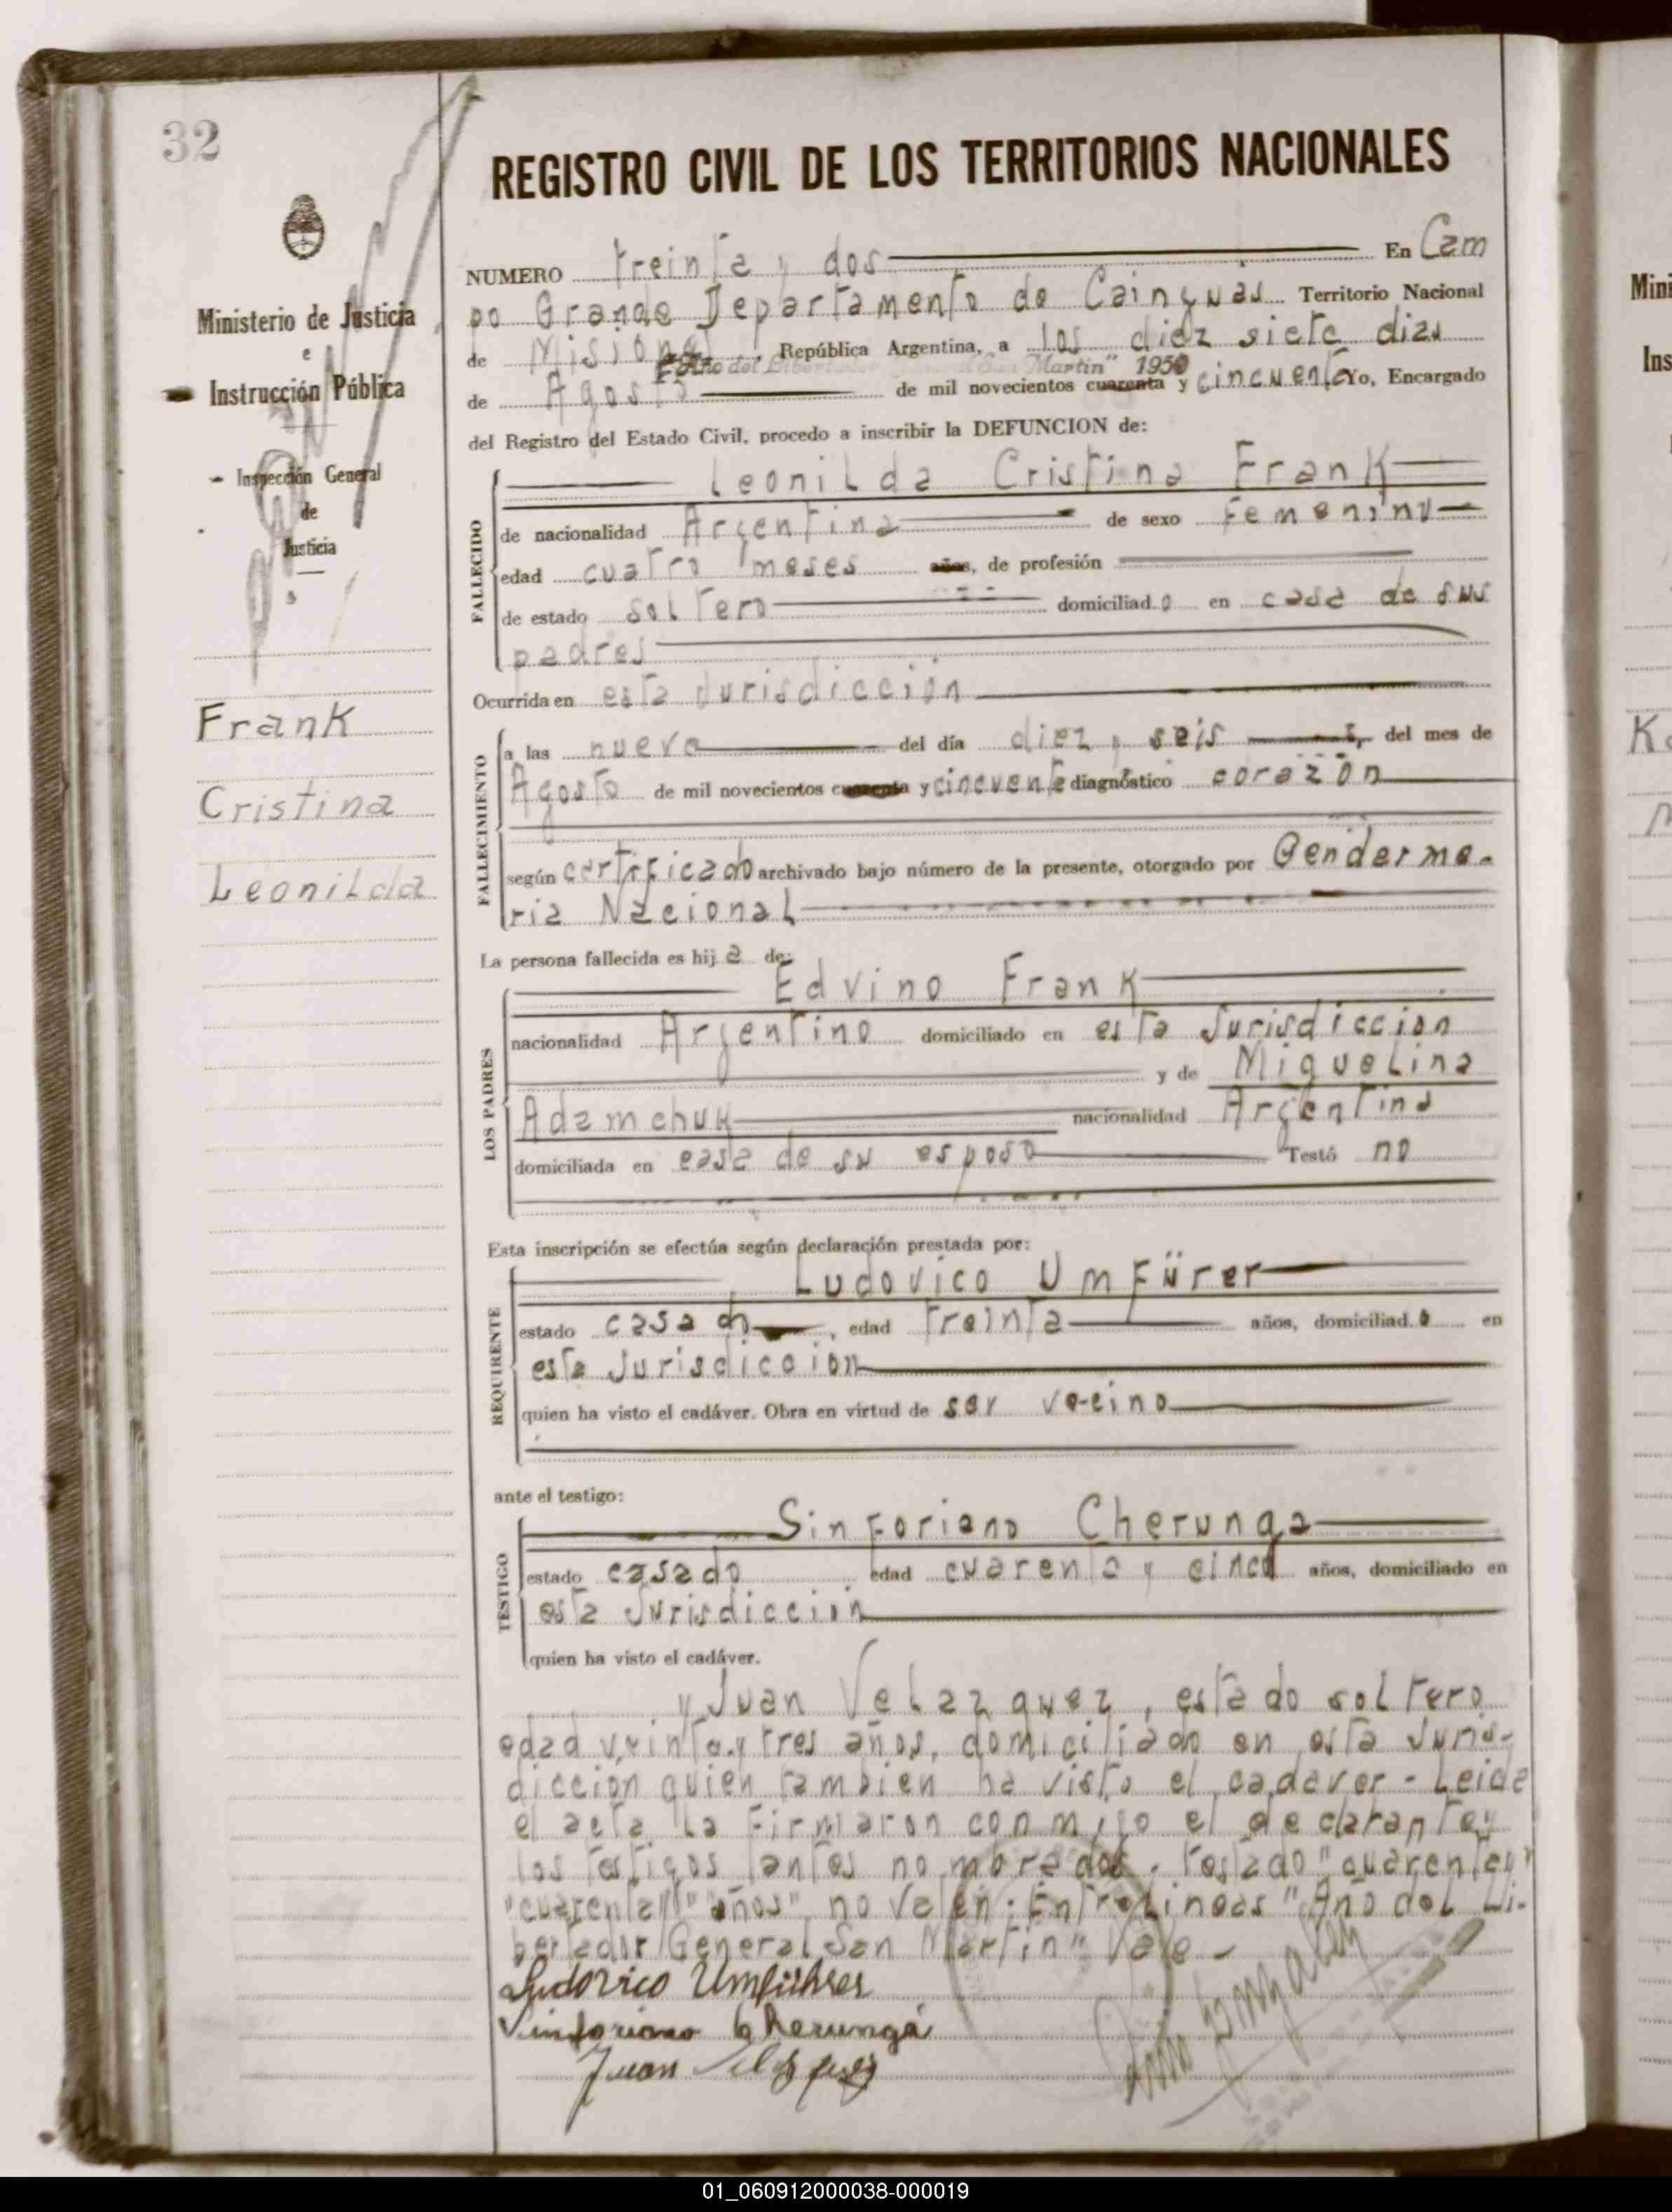 32
Ministerio de Justicia
e
Instrucción Pública
Inspección General
de
Justicia
Frank
Cristina
Leonilda
REGISTRO CIVIL DE LOS TERRITORIOS NACIONALES
NUMERO treinta y dos En Cam
po Grande Departamento de Cainguás Territorio Nacional
de Misiones, República Argentina, a los diez siete dias
"Año del Libertador General San Martin" 1950
de Agosto de mil novecientos cuarenta y cincuenta Yo, Encargado
del Registro del Estado Civil, procedo a inscribir la DEFUNCION de:
FALLECIDO
Leonilda Cristina Frank
de nacionalidad Argentina de sexo Femenino
edad cuatro meses años, de profesión
de estado soltero domiciliado en casa de sus
padres
Ocurrida en esta Jurisdicción
FALLECIMIENTO
a las nueve del día diez y seis, del mes de
Agosto de mil novecientos cuarenta y cincuenta diagnóstico corazón
según certificado archivado bajo número de la presente, otorgado por Genderme-
ria Nacional
La persona fallecida es hija de:
LOS PADRES
Edvino Frank
nacionalidad Argentino domiciliado en esta Jurisdiccion
y de Miguelina
Adamchuk nacionalidad Argentina
domiciliada en casa de su esposo Testó no
Esta inscripción se efectúa según declaración prestada por:
REQUIRENTE
Ludovico Umfürer
estado casado, edad treinta años, domiciliado en
esta Jurisdiccion
quien ha visto el cadáver. Obra en virtud de ser vecino
ante el testigo:
TESTIGO
Sinforiano Cherunga
estado casado edad cuarenta y cinco años, domiciliado en
esta Jurisdicción
quien ha visto el cadáver.
y Juan Velazquez, estado soltero
edad veinta y tres años, domiciliado en esta Juris-
dicción quien tambien ha visto el cadaver - Leida
el acta la firmaron conmigo el declarante y
los testigos antes nombrados. Testado "cuarenta y"
"cuarenta" "años" no valen: EntreLineas "Año del Li-
bertador General San Martin" Vale -
Ludovico Umführer
Sinforiano Cherunga
Juan Velazquez
01_060912000038-000019